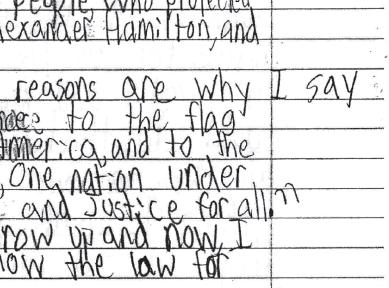 people who protected
lexander Hamilton, and
reasons are why I say
to the flag
America, and to the
One nation under
and Justice for all."
row up and now, I
now the law for